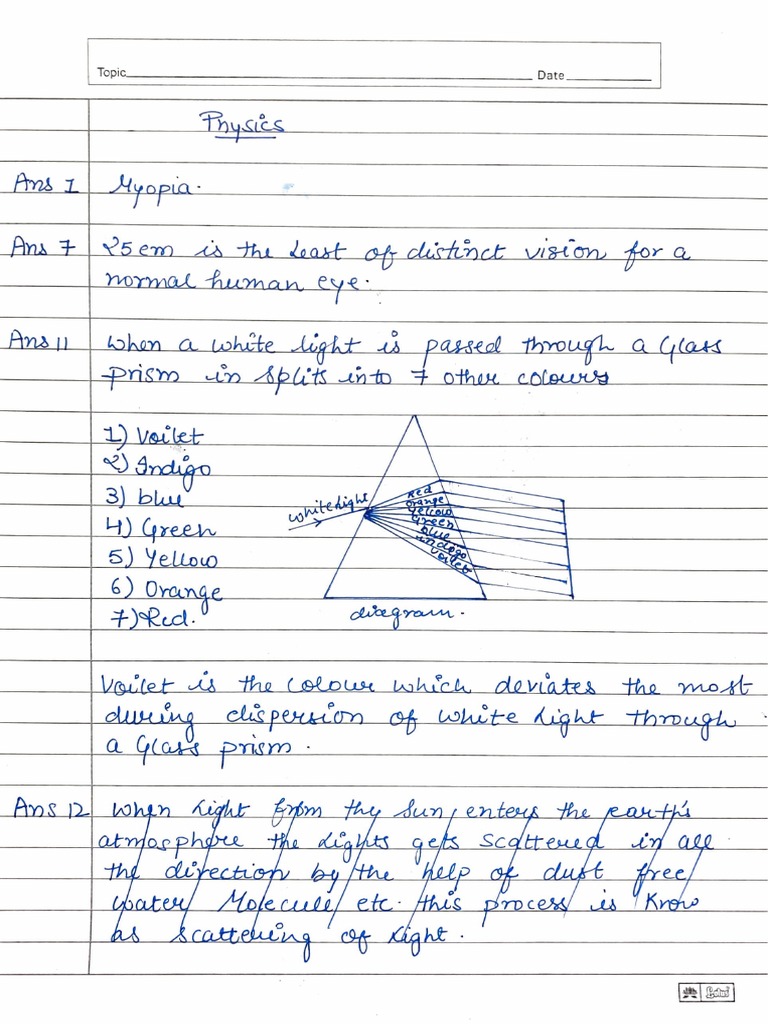 Topic Date
Physics
Ans 1 Myopia.
Ans 7 25cm is the least of distinct vision for a
normal human eye.
Ans 11 When a white light is passed through a Glass
prism in splits into 7 other colours
1) Voilet
2) Indigo
3) blue
4) Green
5) Yellow
6) Orange
7) Red.
white light
Red
Orange
Yellow
Green
blue
indigo
Voilet
diagram.
Voilet is the colour which deviates the most
during dispersion of white light through
a Glass prism.
Ans 12 When light from thy sun, enters the earth's
atmosphere the lights gets scattered in all
the direction by the help of dust free
water Molecule etc. this process is Know
as scattering of light.